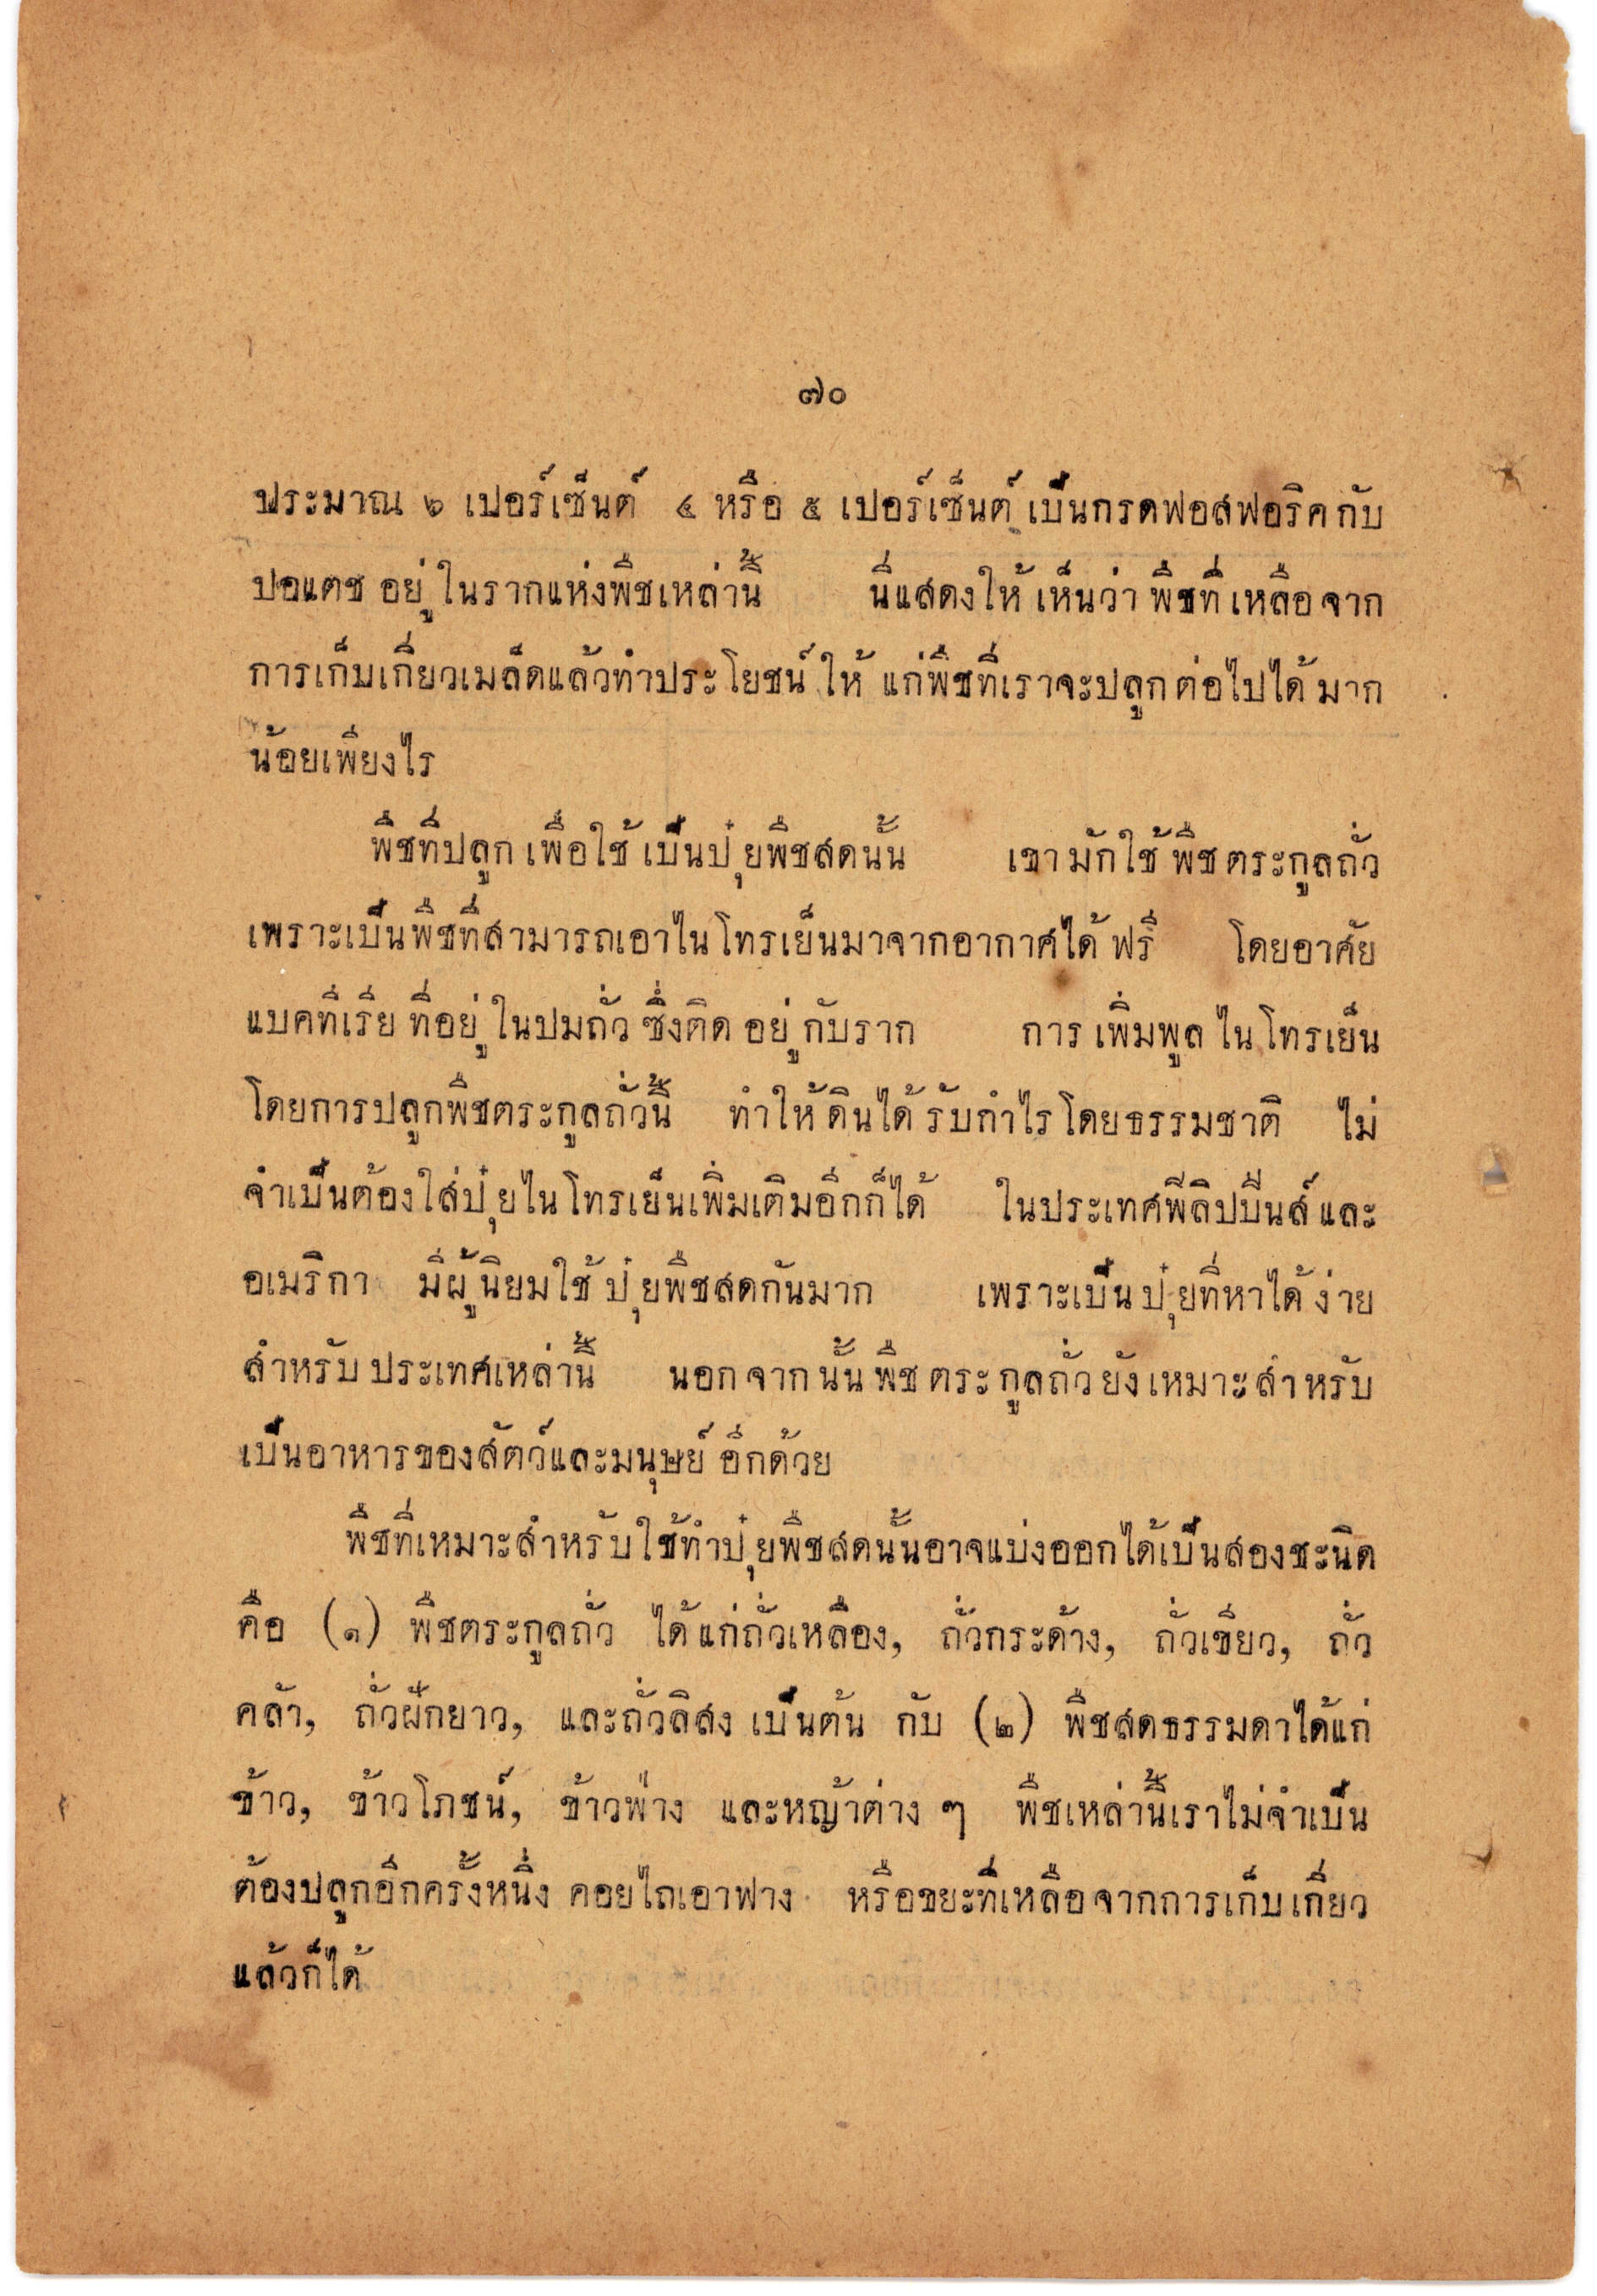 ๗๐
ประมาณ ๖ เปอร์เซ็นต์ ๔ หรือ ๕ เปอร์เซ็นต์ เป็นกรดฟอสฟอริคกับ
ปอแตช อยู่ในรากแห่งพืชเหล่านี้ นี่แสดงให้เห็นว่า พืชที่เหลือจาก
การเก็บเกี่ยวเมล็ดแล้วทำประโยชน์ให้แก่พืชที่เราจะปลูกต่อไปได้มาก
น้อยเพียงไร
พืชที่ปลูกเพื่อใช้เป็นปุ๋ยพืชสดนั้น เขามักใช้พืชตระกูลถั่ว
เพราะเป็นพืชที่สามารถเอาไนโทรเย็นมาจากอากาศได้ฟรี โดยอาศัย
แบคทีเรีย ที่อยู่ในปมถั่ว ซึ่งติดอยู่กับราก การเพิ่มพูลไนโทรเย็น
โดยการปลูกพืชตระกูลถั่วนี้ ทำให้ดินได้รับกำไรโดยธรรมชาติ ไม่
จำเป็นต้องใส่ปุ๋ยไนโทรเย็นเพิ่มเติมอีกก็ได้ ในประเทศฟิลิปปีนส์และ
อเมริกา มีผู้นิยมใช้ปุ๋ยพืชสดกันมาก เพราะเป็นปุ๋ยที่หาได้ง่าย
สำหรับประเทศเหล่านี้ นอกจากนั้นพืชตระกูลถั่วยังเหมาะสำหรับ
เป็นอาหารของสัตว์และมนุษย์อีกด้วย
พืชที่เหมาะสำหรับใช้ทำปุ๋ยพืชสดนั้นอาจแบ่งออกได้เป็นสองชะนิด
คือ (๑) พืชตระกูลถั่ว ได้แก่ถั่วเหลือง, ถั่วกระด้าง, ถั่วเขียว, ถั่ว
คล้า, ถั่วฝักยาว, และถั่วลิสง เป็นต้น กับ (๒) พืชสดธรรมดาได้แก่
ข้าว, ข้าวโภชน์, ข้าวฟ่าง และหญ้าต่าง ๆ พืชเหล่านี้เราไม่จำเป็น
ต้องปลูกอีกครั้งหนึ่ง คอยไถเอาฟาง หรือขยะที่เหลือจากการเก็บเกี่ยว
แล้วก็ได้